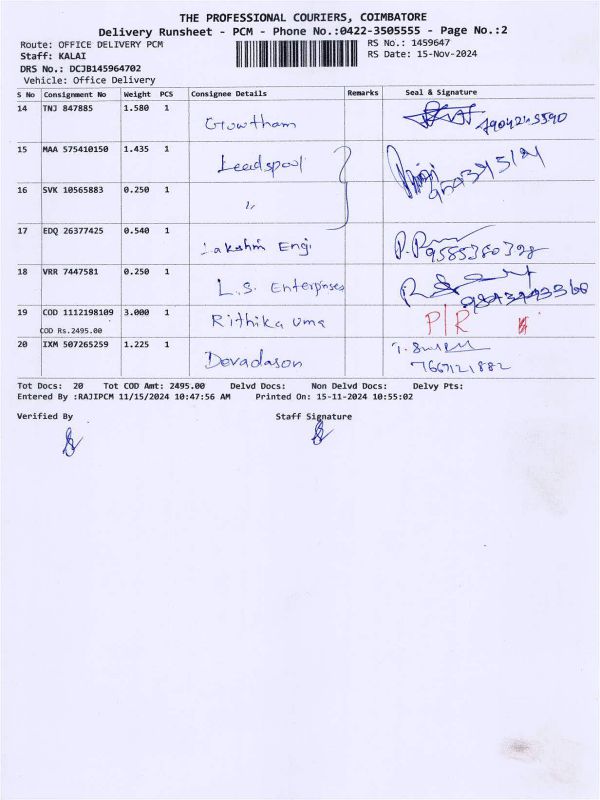 THE PROFESSIONAL COURIERS, COIMBATORE
Delivery Runsheet - PCM - Phone No.:0422-3505555 - Page No.:2
Route: OFFICE DELIVERY PCM
RS No.: 1459647
Staff: KALAI
RS Date: 15-Nov-2024
DRS No.: DCJB145964702
Vehicle: Office Delivery
S No Consignment No Weight PCS Consignee Details Remarks Seal & Signature
14 TNJ 847885 1.580 1 Gowtham
15 MAA 575410150 1.435 1 Leadspool
16 SVK 10565883 0.250 1 〃
17 EDQ 26377425 0.540 1 Lakshmi Engi 9585380398
18 VRR 7447581 0.250 1 L.S. Enterprises
19 COD 1112198109 3.000 1 Rithika uma P/R
COD Rs.2495.00
20 IXM 507265259 1.225 1 Devadason 7667121882
Tot Docs: 20 Tot COD Amt: 2495.00 Delvd Docs: Non Delvd Docs: Delvy Pts:
Entered By :RAJIPCM 11/15/2024 10:47:56 AM Printed On: 15-11-2024 10:55:02
Verified By Staff Signature